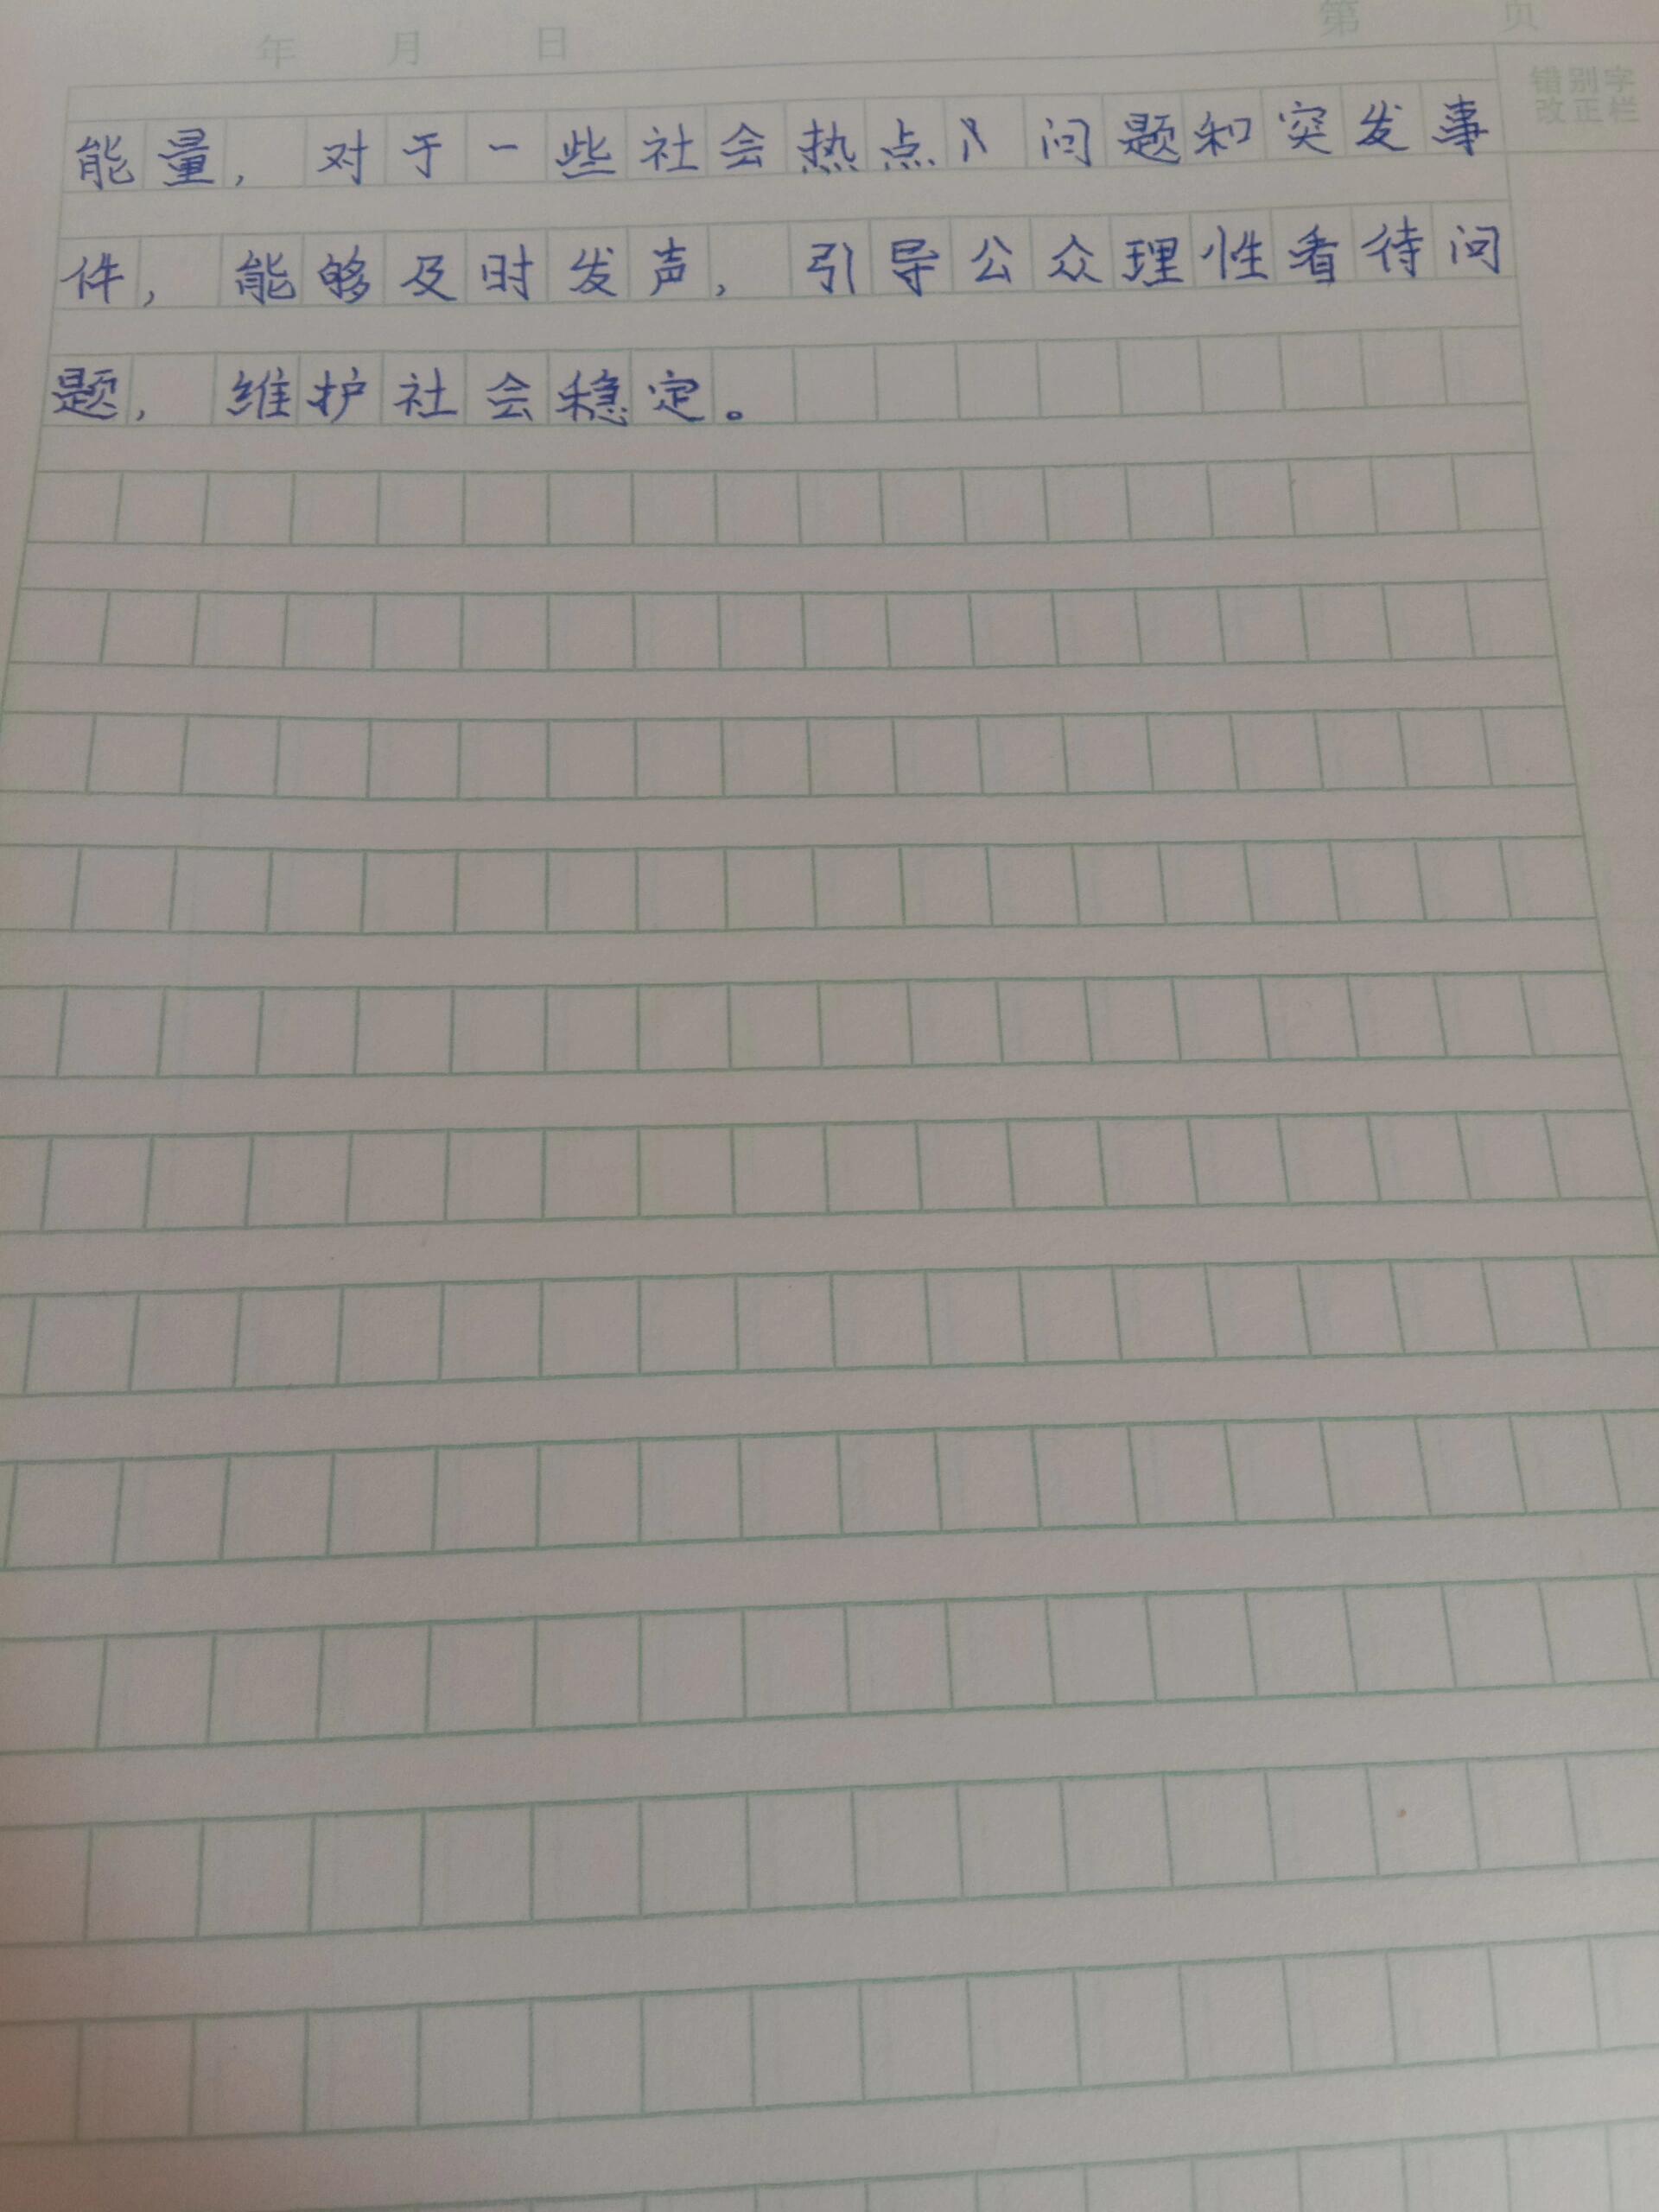 年 月 日 第 页
错别字
改正栏
能量，对于一些社会热点问题和突发事
件，能够及时发声，引导公众理性看待问
题，维护社会稳定。